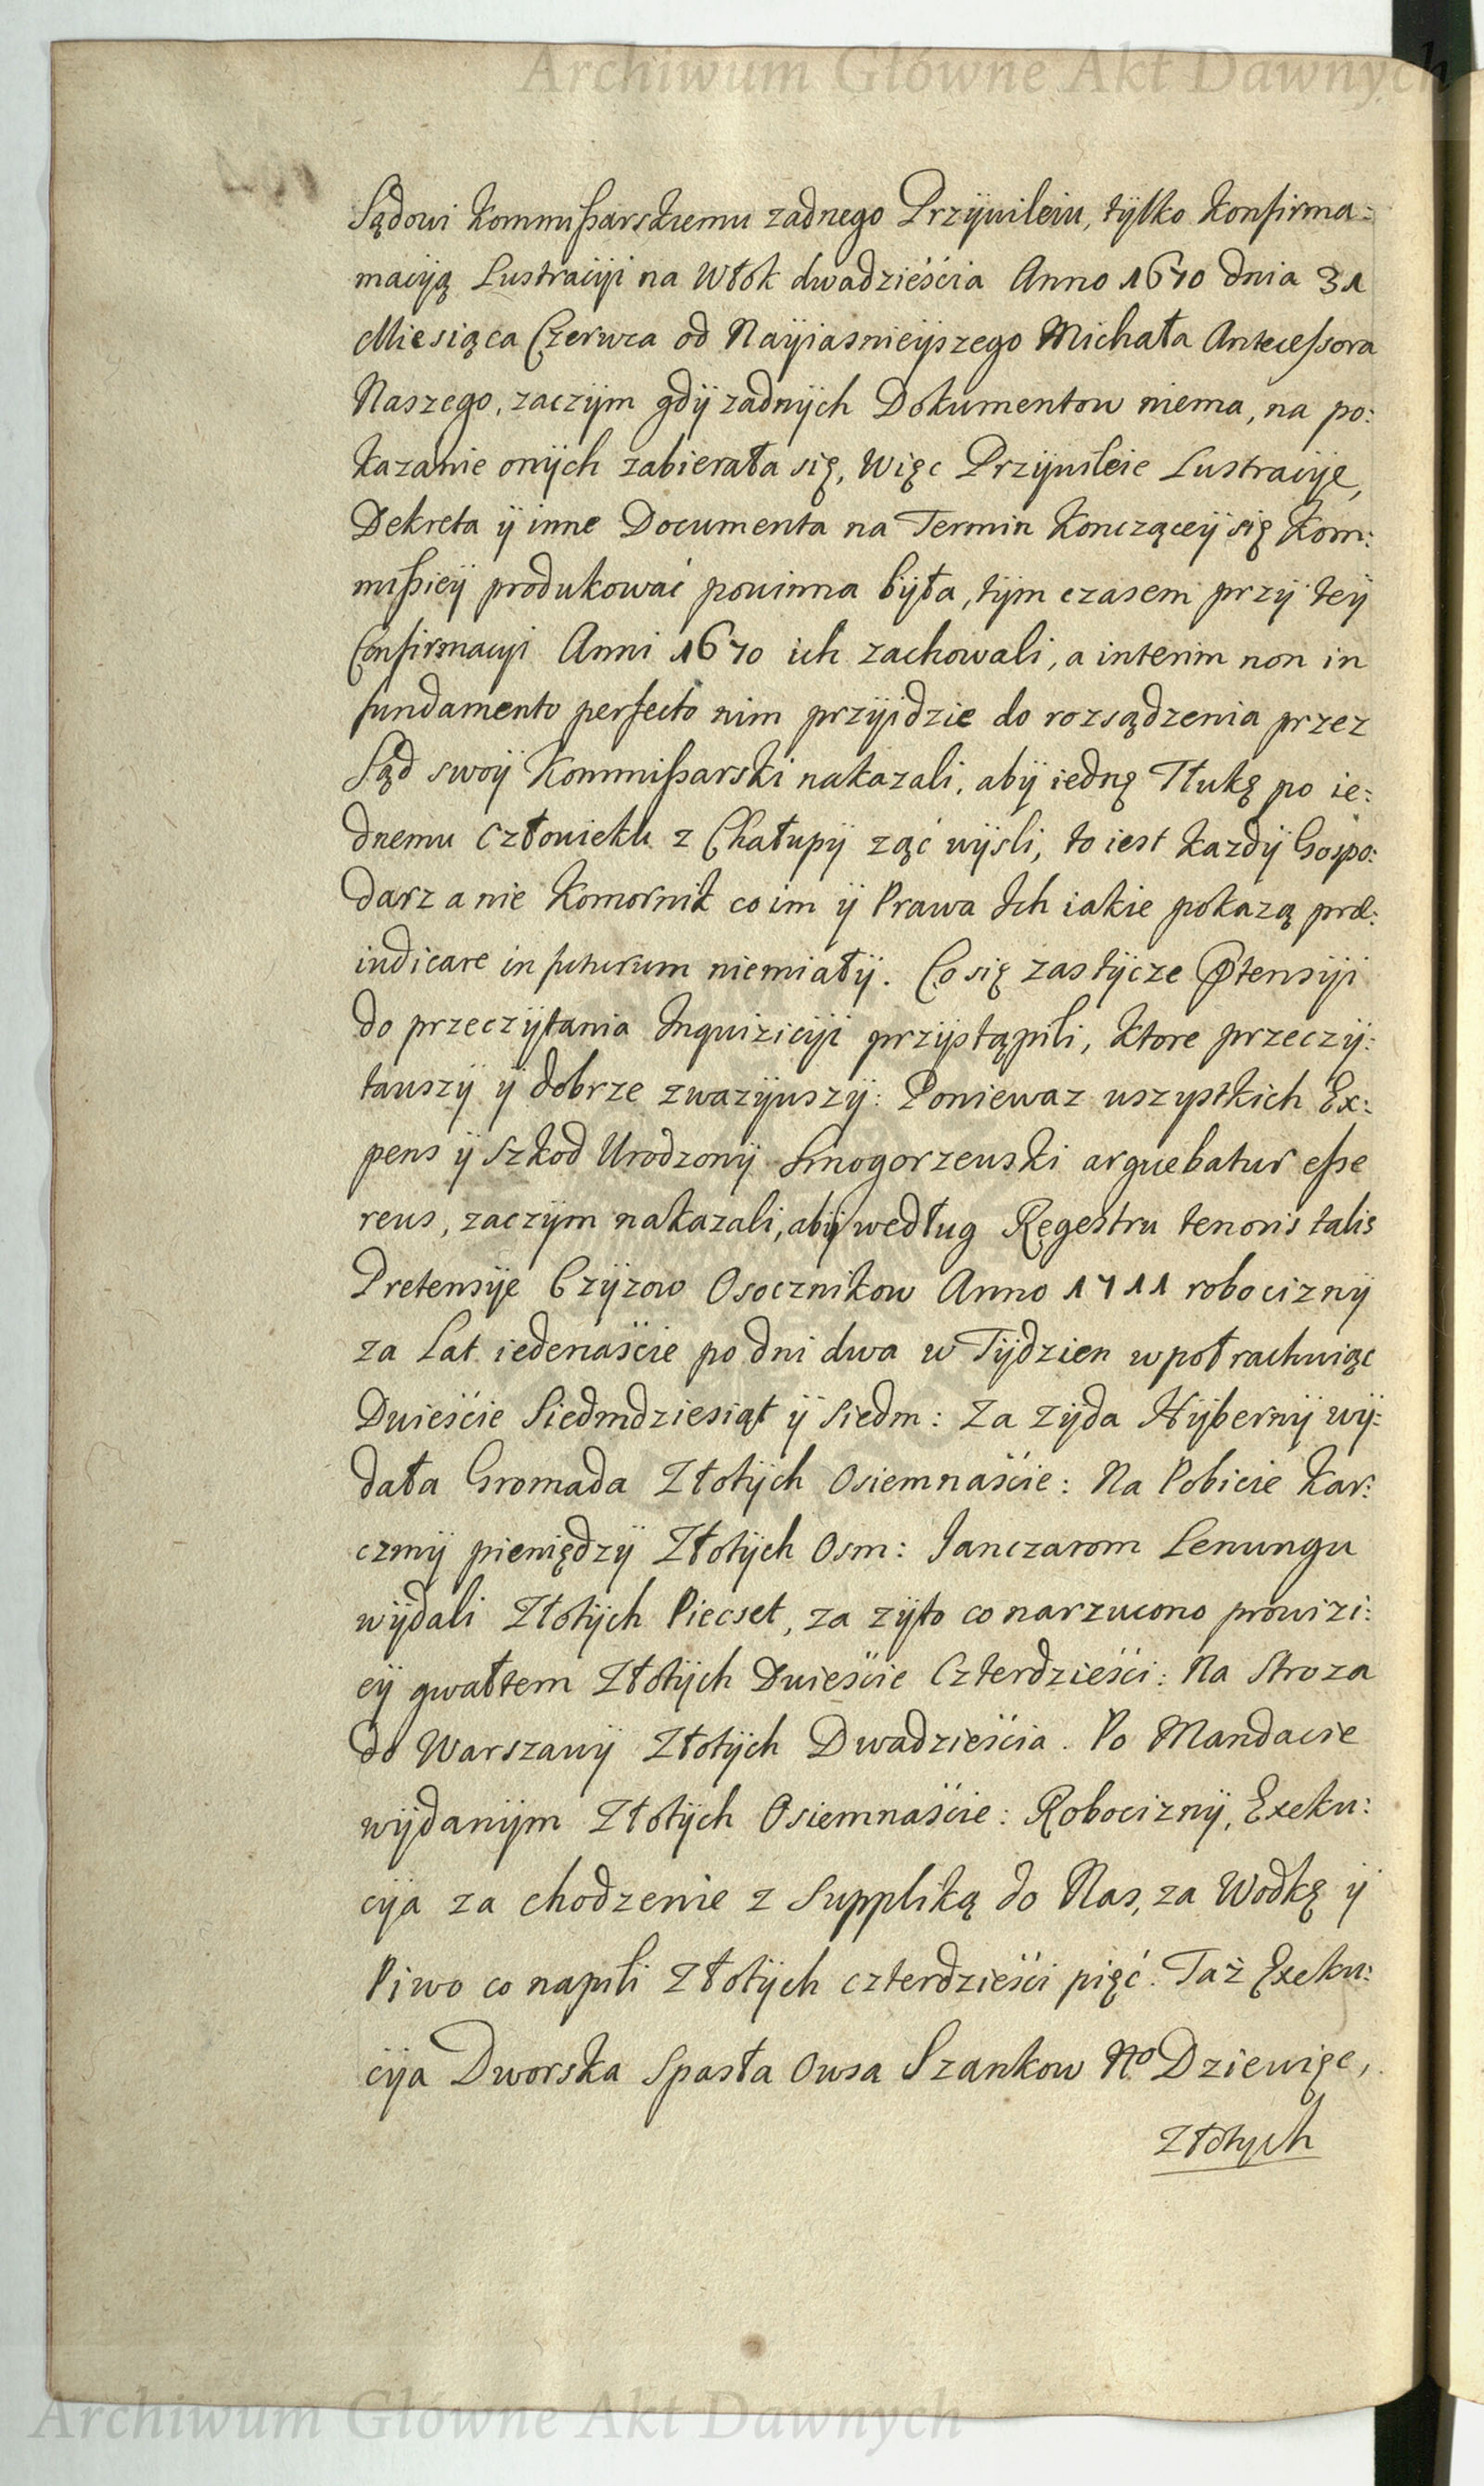 Archiwum Główne Akt Dawnych
Sądowi Kommißarskiemu zadnego Przÿwileiu, tÿlko Konfirma:
maciją Lustraciji na Włók dwadzieścia Anno 1670 dnia 31
Miesiąca Czerwca od Naÿiasnieÿszego Michała Anteceßora
Naszego, zaczÿm gdÿ zadnÿch Dokumentow niema, na po:
kazánie onÿch zabierała się, Więc Przÿwileie Lustracije,
Dekreta ÿ inne Documenta na Termin Koncząceÿ się Kom:
mißieÿ produkować powinna bÿła, tÿm czasem przÿ teÿ
Confirmacyi Anni 1670 ich zachowali, a interim non in
fundamento perfecto nim przÿidzie do rozsądzenia przez
Sąd swoÿ Kommißarski nakazali, abÿ iednę Tłukę po ie:
dnemu Człowieku z Chałupÿ ząć wÿsli, to iest kazdÿ Gospo:
darz a nie Komornik co im ÿ Prawa Ich iakie pokazą præ:
iudicare in futurum niemiałÿ. Co się zastÿcze Ptensiji
do przeczÿtania Inquiziciji przÿstąpili, ktore przeczÿ:
tawszÿ ÿ dobrze zwazÿwszÿ: Poniewaz wszystkich Ex:
pens ÿ Szkod Urodzonÿ Smogorzewski arguebatur eße
reus, zaczÿm nakazali, abÿ według Regestru tenoris talis
Pretensÿe Czÿzow Osocznikow Anno 1711 robociznÿ
za Lat iedenaście po dni dwa w Tÿdzien wpoł rachuiąc
Dwieście Siedmdziesiąt ÿ Siedm: Za Zÿda Hÿbernÿ wÿ:
dała Gromada Złotÿch Osiemnaście: Na Pobicie Kar:
czmÿ pieniędzÿ Złotÿch Osm: Janczarom Lenungu
wÿdali Złotÿch Piecset, za zÿto co narzucono prowizi:
eÿ gwałtem Złotÿch Dwieście Czterdzieści: Na Stroza
do Warszawÿ Złotÿch Dwadzieścia. Po Mandacie
wÿdanÿm Złotÿch Osiemnaście: Robociznÿ, Exeku:
cija za chodzenie z Suppliką do Nas, za Wodkę ÿ
Piwo co napili Złotÿch czterdzieści pięć. Taż Exeku:
cija Dworska Spasła Owsa Szankow No Dziewięc,
Złotych
Archiwum Główne Akt Dawnych